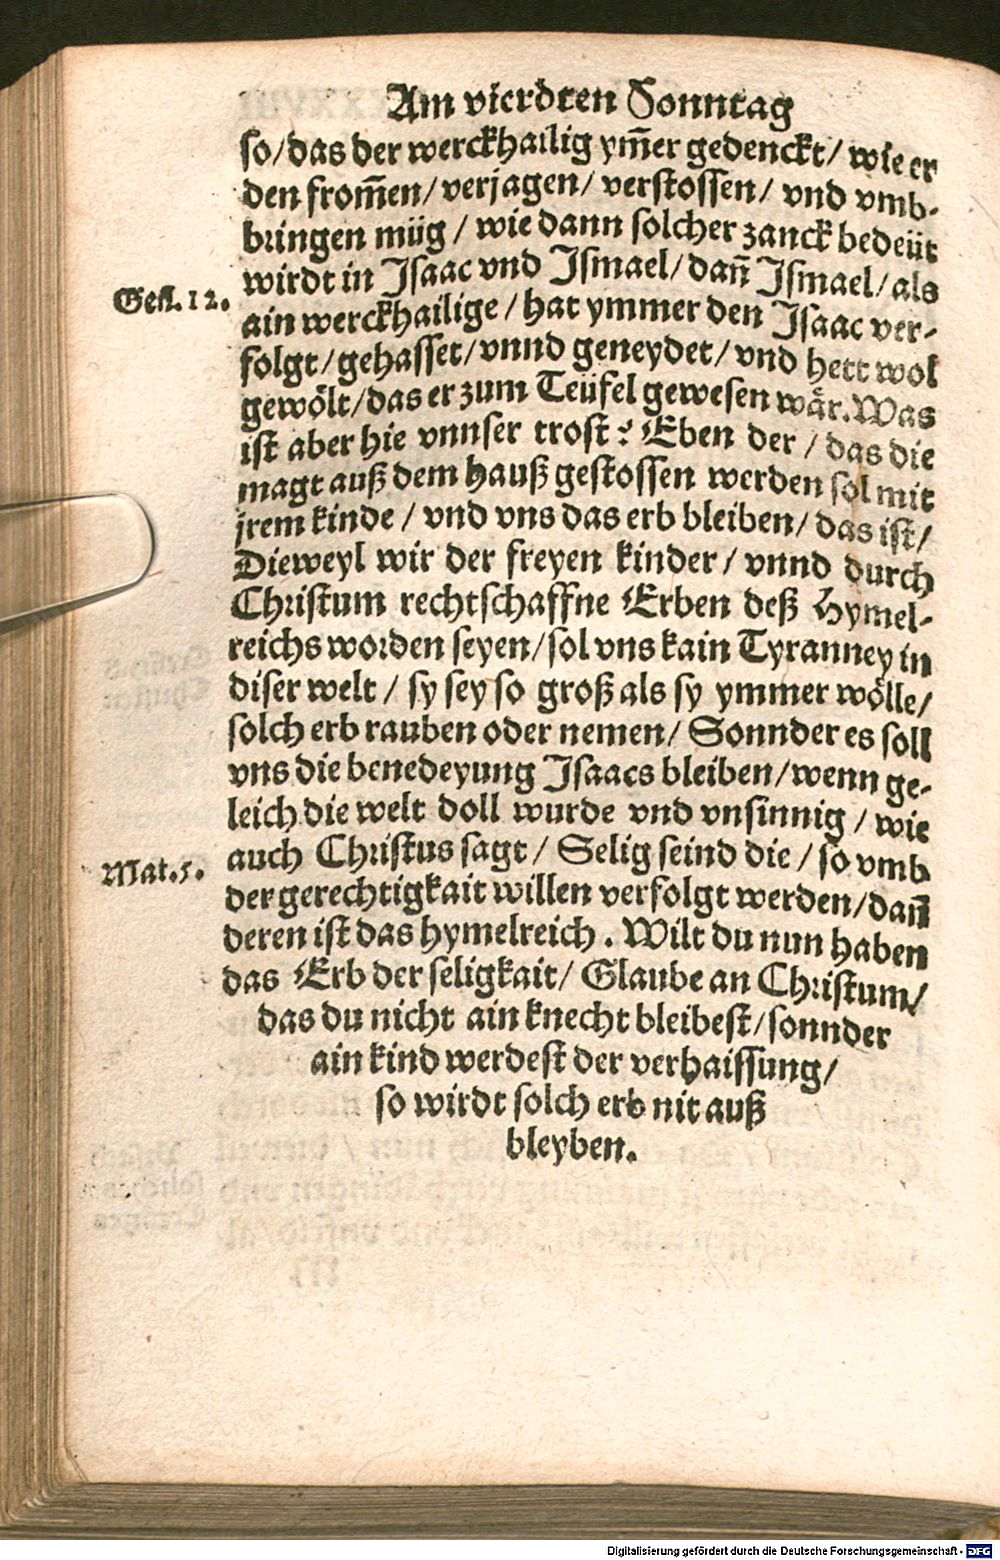 Am vierdten Sonntag
so/das der werckhailig ym̄er gedenckt/ wie er
den from̄en/verjagen/ verstossen/ vnd vmb-
bringen müg / wie dann solcher zanck bedeüt
wirdt in Isaac vnd Ismael/ dañ Ismael/ als
Gen. 12.
ain werckhailige / hat ymmer den Isaac ver-
folgt/gehasset/vnnd geneydet/ vnd hett wol
gewölt/das er zum Teüfel gewesen wär. Was
ist aber hie vnnser trost? Eben der / das die
magt auß dem hauß gestossen werden sol mit
jrem kinde / vnd vns das erb bleiben/ das ist/
Dieweyl wir der freyen kinder / vnnd durch
Christum rechtschaffne Erben deß Hymel-
reichs worden seyen/sol vns kain Tyranney in
diser welt / sy sey so groß als sy ymmer wölle/
solch erb rauben oder nemen/ Sonnder es soll
vns die benedeyung Isaacs bleiben/wenn ge-
leich die welt doll wurde vnd vnsinnig / wie
auch Christus sagt/ Selig seind die / so vmb
Mat. 5.
der gerechtigkait willen verfolgt werden/dañ
deren ist das hymelreich. Wilt du nun haben
das Erb der seligkait/ Glaube an Christum/
das du nicht ain knecht bleibest/sonnder
ain kind werdest der verhaissung/
so wirdt solch erb nit auß
bleyben.
Digitalisierung gefördert durch die Deutsche Forschungsgemeinschaft - DFG